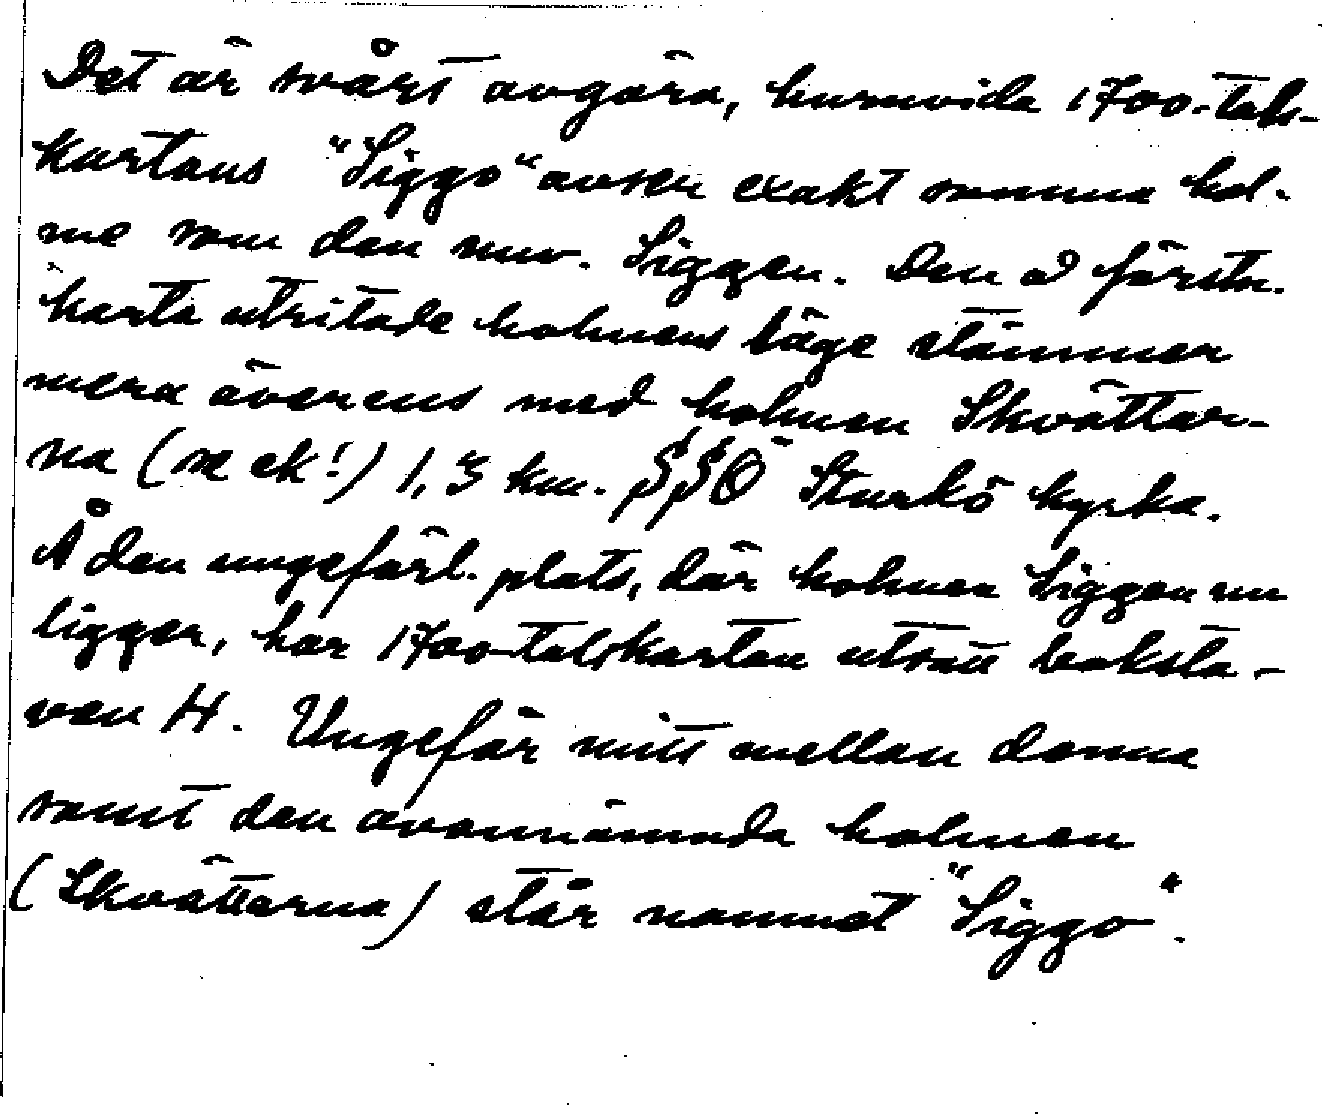 Det är svårt avgöra, huruvida 1700-tals-
kartans "Siggo" avser exakt samma hol-
me som den nuv. Siggen. Den å förstn.
karta utritade holmens läge stämmer
mera överens med holmen Skvättar-
na (se ek!) 1,3 km. SSÖ Sturkö kyrka.
Å den ungefärl. plats, där holmen Siggen nu
ligger, har 1700-talskartan utsatt boksta-
ven H. Ungefär mitt mellan denna
samt den ovannämnda holmen
(Skvättarna) står namnet "Siggo".